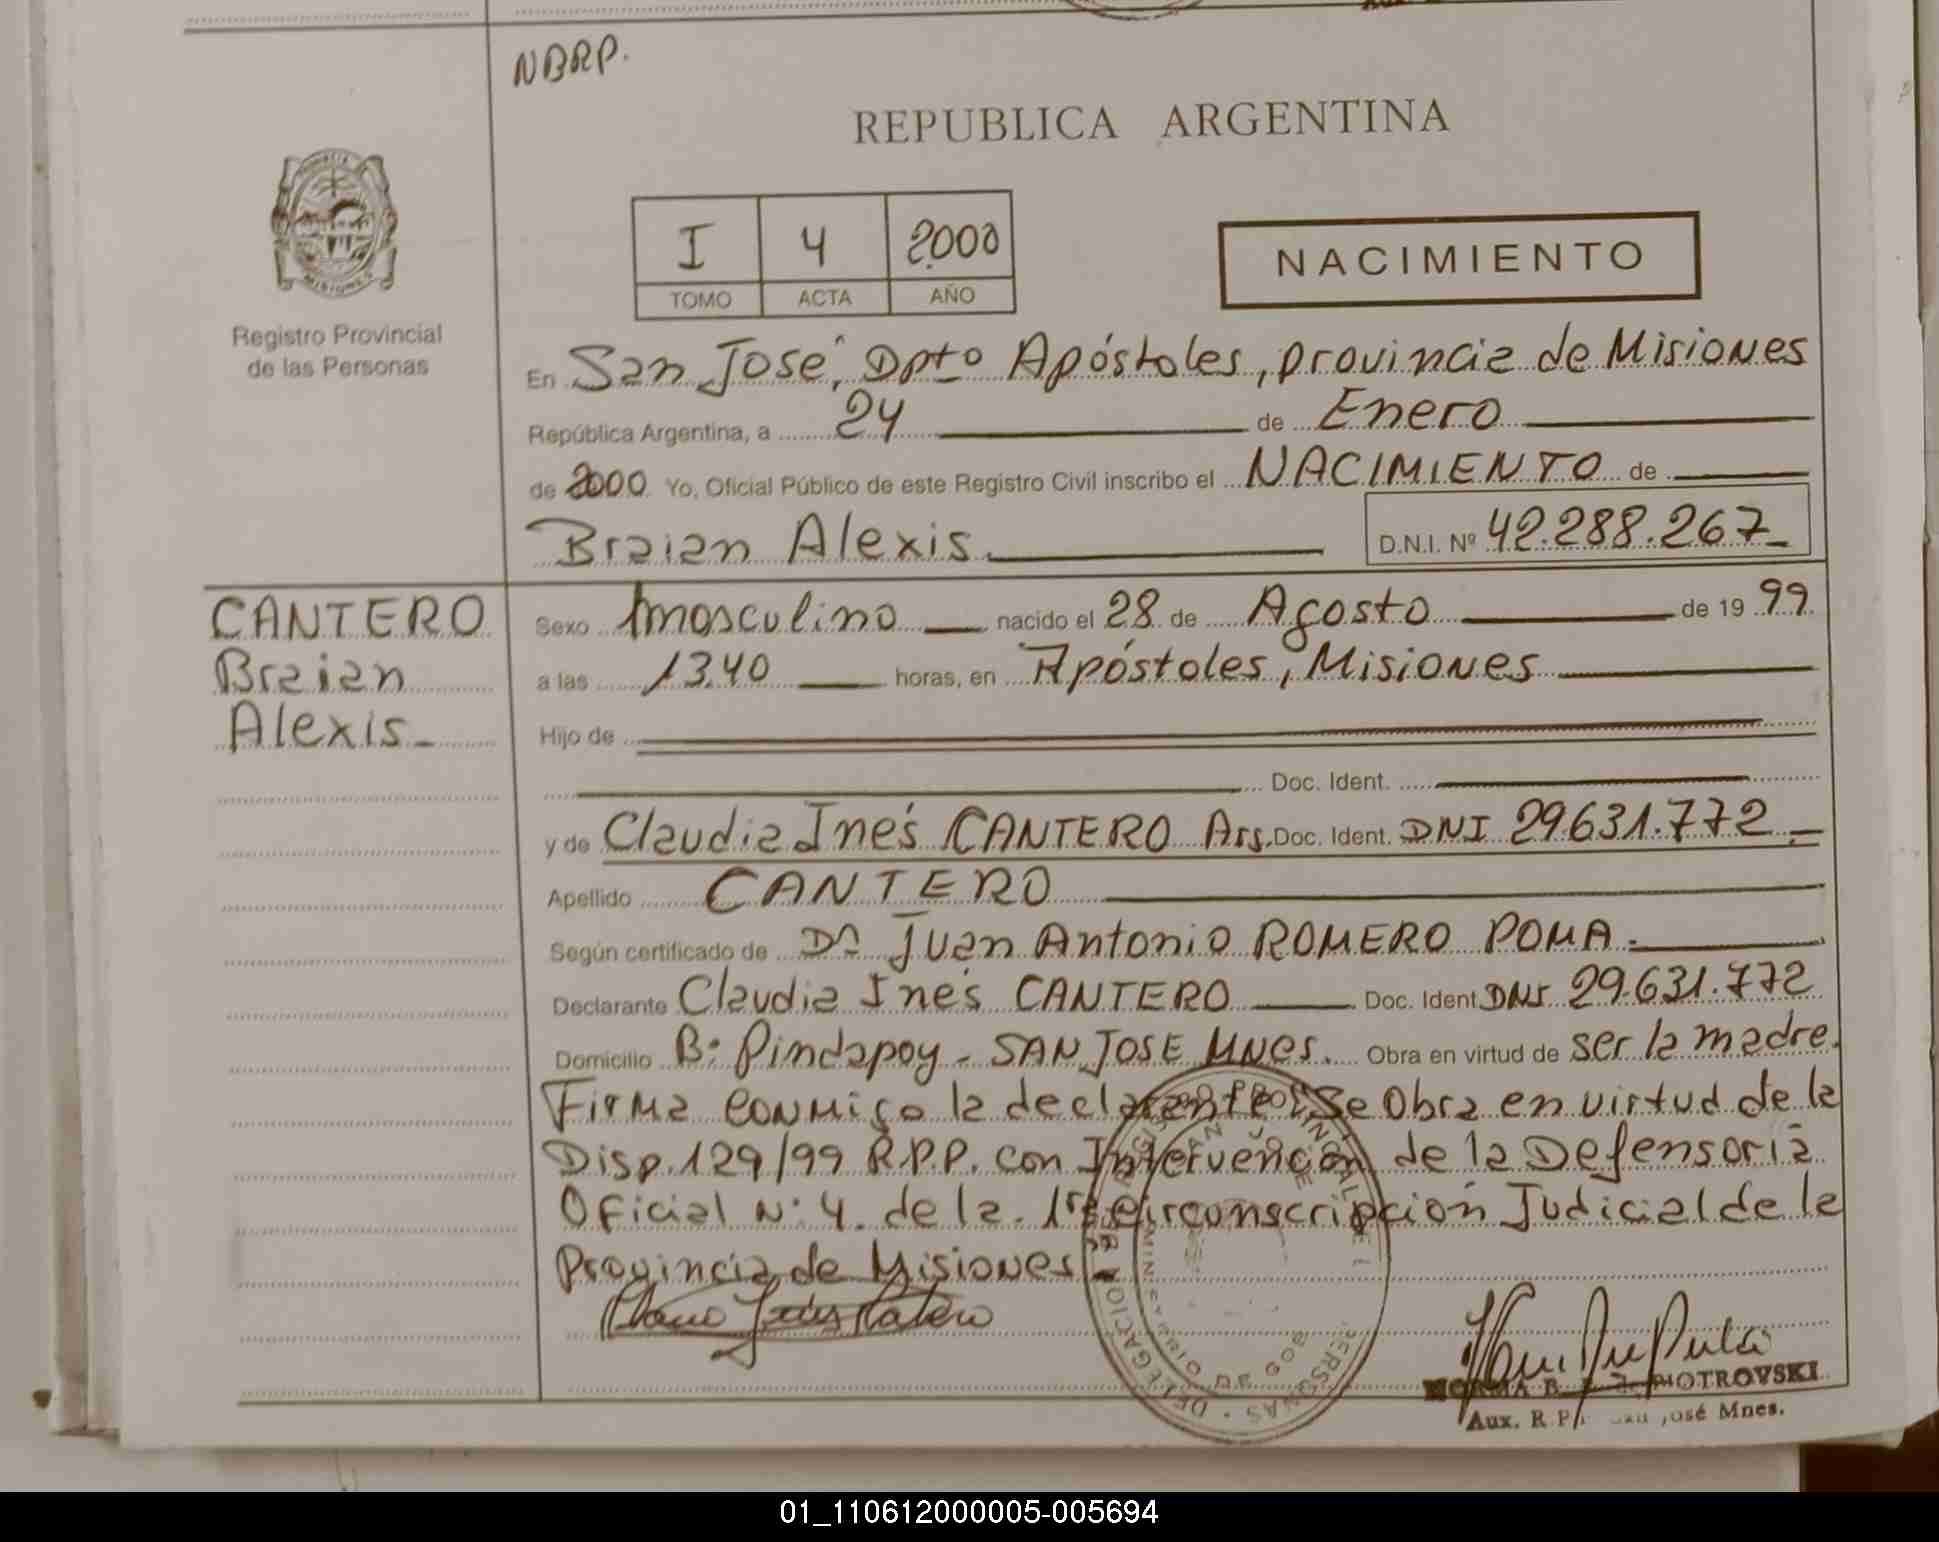 NBRP.
REPUBLICA ARGENTINA
I 4 2000
TOMO ACTA AÑO
NACIMIENTO
MISIONES
Registro Provincial
de las Personas
En San José, Dpto Apóstoles, provincia de Misiones
República Argentina, a 24 de Enero
de 2000 Yo, Oficial Público de este Registro Civil inscribo el NACIMIENTO de
Braian Alexis D.N.I. Nº 42.288.267
CANTERO
Braian
Alexis
Sexo masculino nacido el 28 de Agosto de 19 99
a las 13.40 horas, en Apóstoles, Misiones
Hijo de
Doc. Ident.
y de Claudia Inés CANTERO Arg. Doc. Ident. DNI 29.631.772
Apellido CANTERO
Según certificado de Dr. Juan Antonio ROMERO POMA
Declarante Claudia Inés CANTERO Doc. Ident DNI 29.631.772
Domicilio Bº Pindapoy - SAN JOSE MNES. Obra en virtud de ser la madre.
Firma conmigo la declarante. Se Obra en virtud de la
Disp. 129/99 R.P.P. con Intervención de la Defensoria
Oficial Nº 4 de la 1ra circonscripción Judicial de la
Provincia de Misiones
PIOTROVSKI
Aux. R.P. José Mnes.
01_110612000005-005694